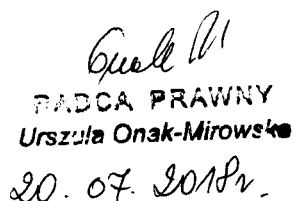 RADCA PRAWNY
Urszula Onak-Mirowska
20. 07. 2018r.